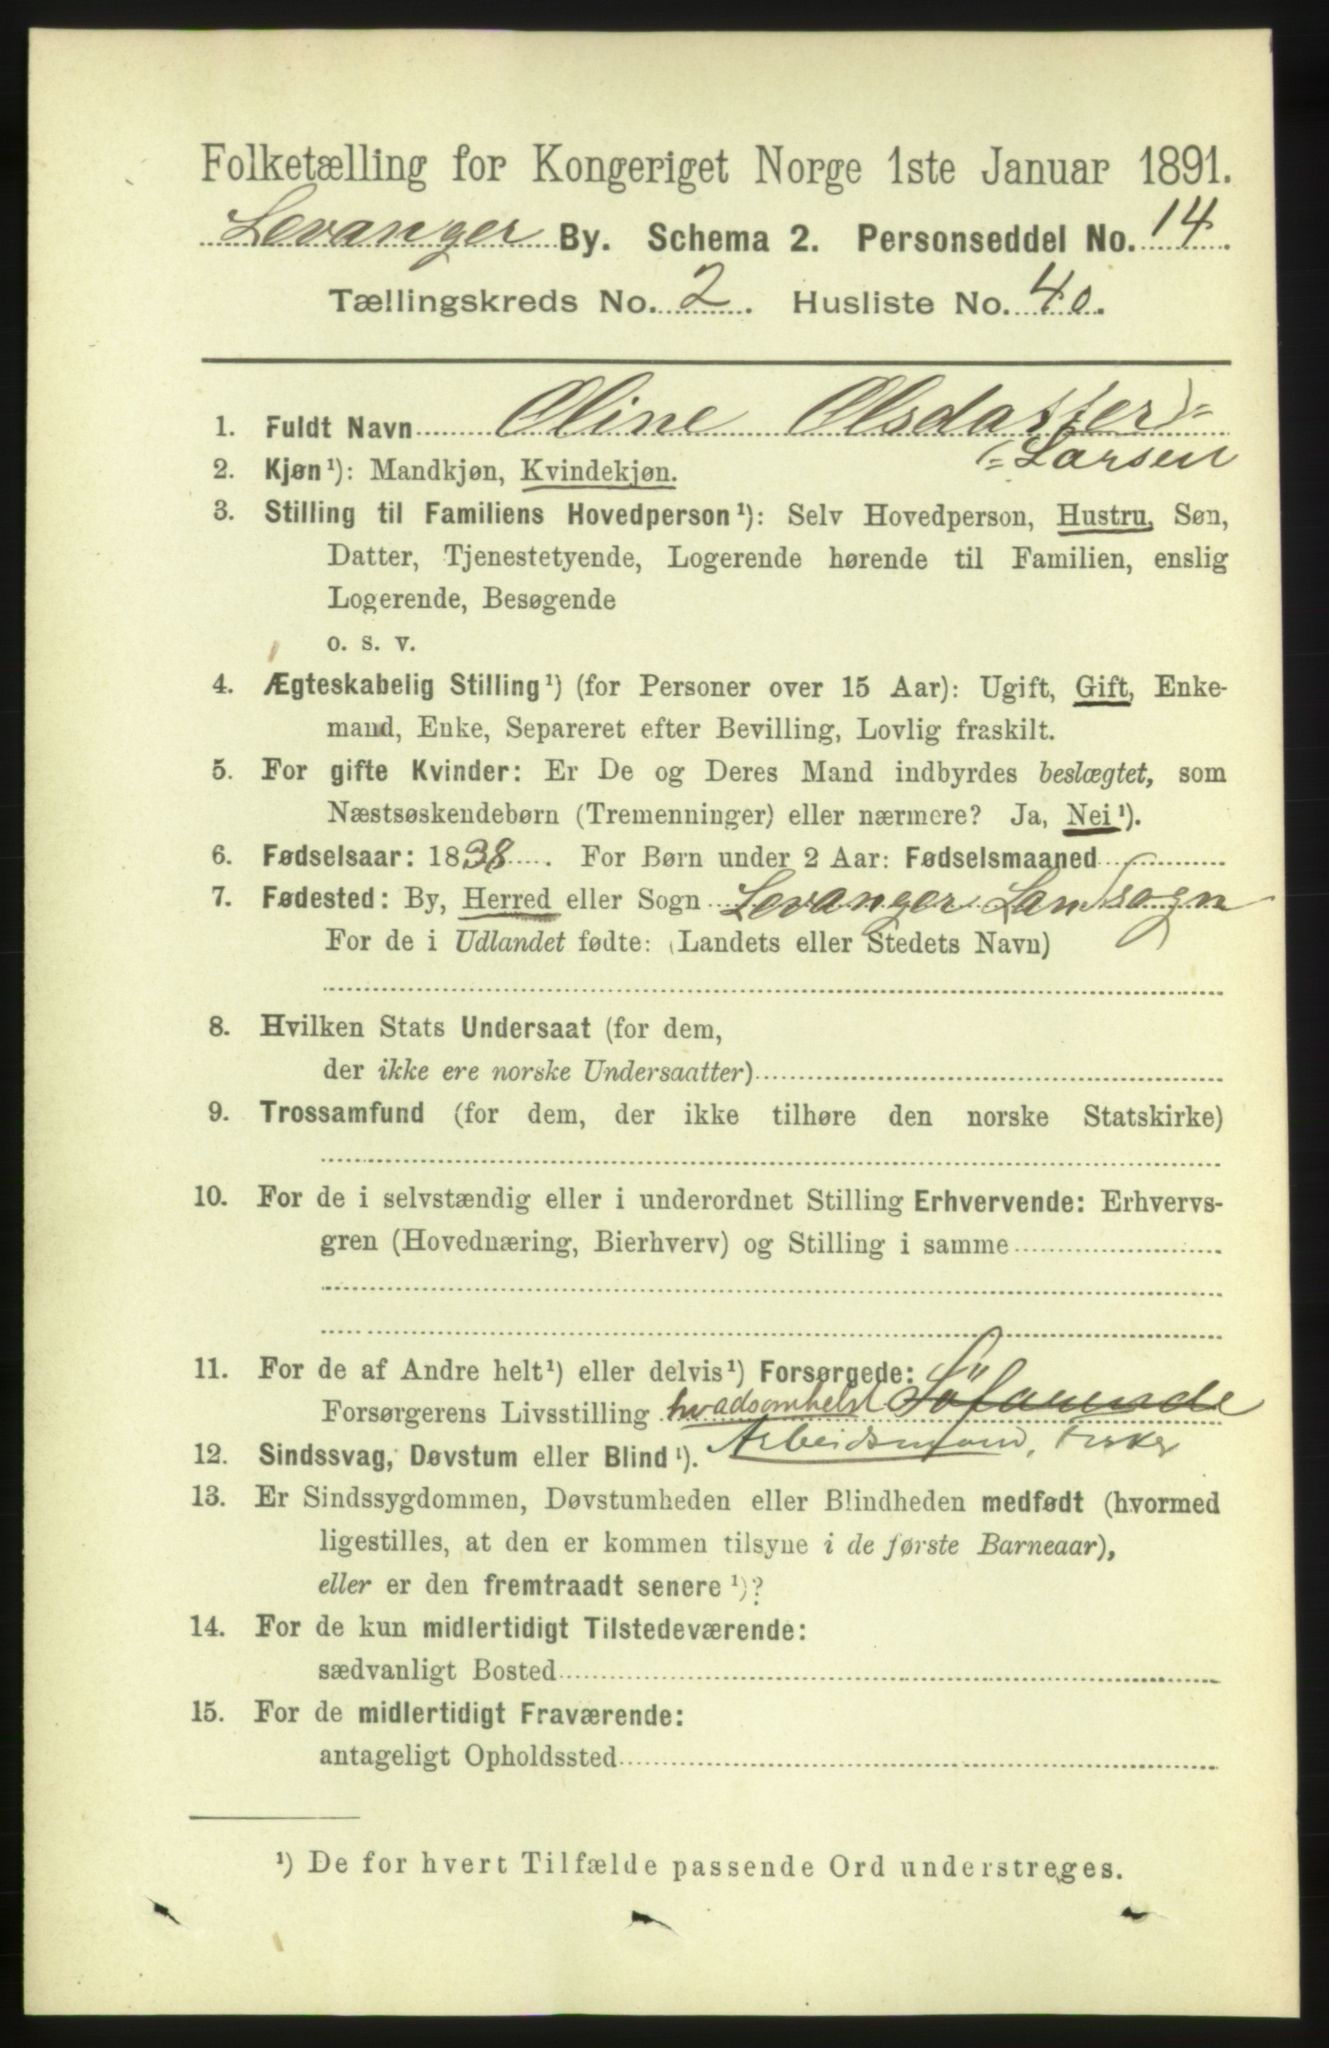 Folketælling for Kongeriget Norge 1ste Januar 1891.
Levanger By. Schema 2. Personseddel No. 14.
Tællingskreds No. 2. Husliste No. 40.
1. Fuldt Navn Oline Olsdatter
(= Larsen
2. Kjøn¹): Mandkjøn, Kvindekjøn.
3. Stilling til Familiens Hovedperson¹): Selv Hovedperson, Hustru, Søn,
Datter, Tjenestetyende, Logerende hørende til Familien, enslig
Logerende, Besøgende
o. s. v.
4. Ægteskabelig Stilling¹) (for Personer over 15 Aar): Ugift, Gift, Enke-
mand, Enke, Separeret efter Bevilling, Lovlig fraskilt.
5. For gifte Kvinder: Er De og Deres Mand indbyrdes beslægtet, som
Næstsøskendebørn (Tremenninger) eller nærmere? Ja, Nei¹).
6. Fødselsaar: 1838. For Børn under 2 Aar: Fødselsmaaned
7. Fødested: By, Herred eller Sogn Levanger Landsogn
For de i Udlandet fødte: (Landets eller Stedets Navn)
8. Hvilken Stats Undersaat (for dem,
der ikke ere norske Undersaatter)
9. Trossamfund (for dem, der ikke tilhøre den norske Statskirke)
10. For de i selvstændig eller i underordnet Stilling Erhvervende: Erhvervs-
gren (Hovednæring, Bierhverv) og Stilling i samme
11. For de af Andre helt¹) eller delvis¹) Forsørgede:
Forsørgerens Livsstilling hvadsomhelst
Arbeidsmand, Fisker
12. Sindssvag, Døvstum eller Blind¹).
13. Er Sindssygdommen, Døvstumheden eller Blindheden medfødt (hvormed
ligestilles, at den er kommen tilsyne i de første Barneaar),
eller er den fremtraadt senere¹)?
14. For de kun midlertidigt Tilstedeværende:
sædvanligt Bosted
15. For de midlertidigt Fraværende:
antageligt Opholdssted
¹) De for hvert Tilfælde passende Ord understreges.